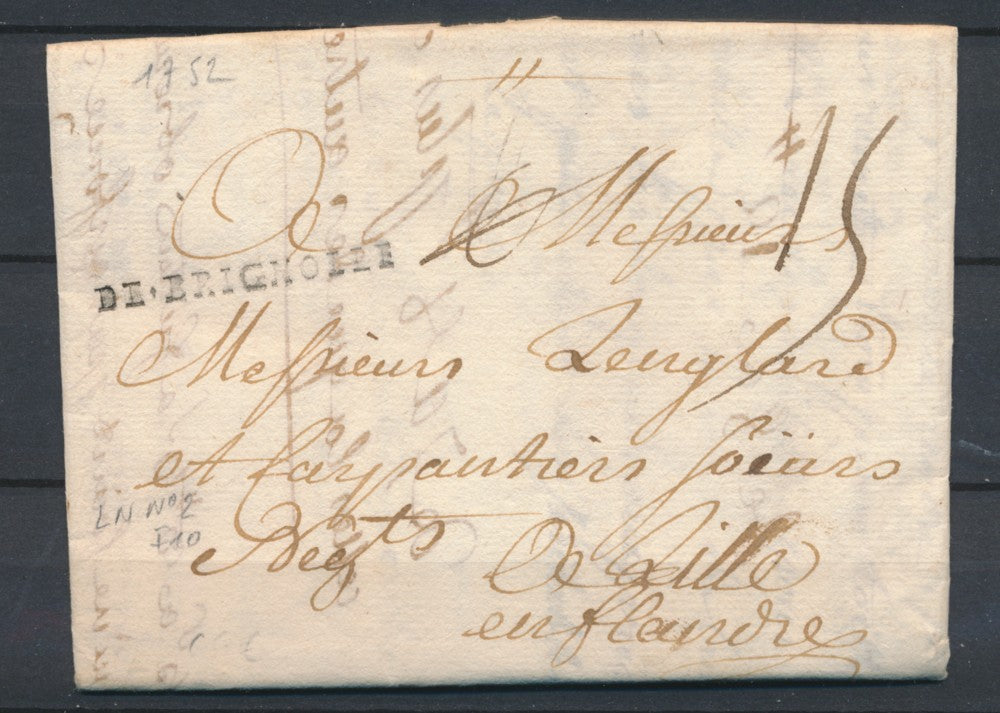 1752
A Messieurs
15
DE·BRIGNOLLE
Messieurs Lenglard
et Carpantiers
Negts De Lille
en flandre
LN No 2
I10